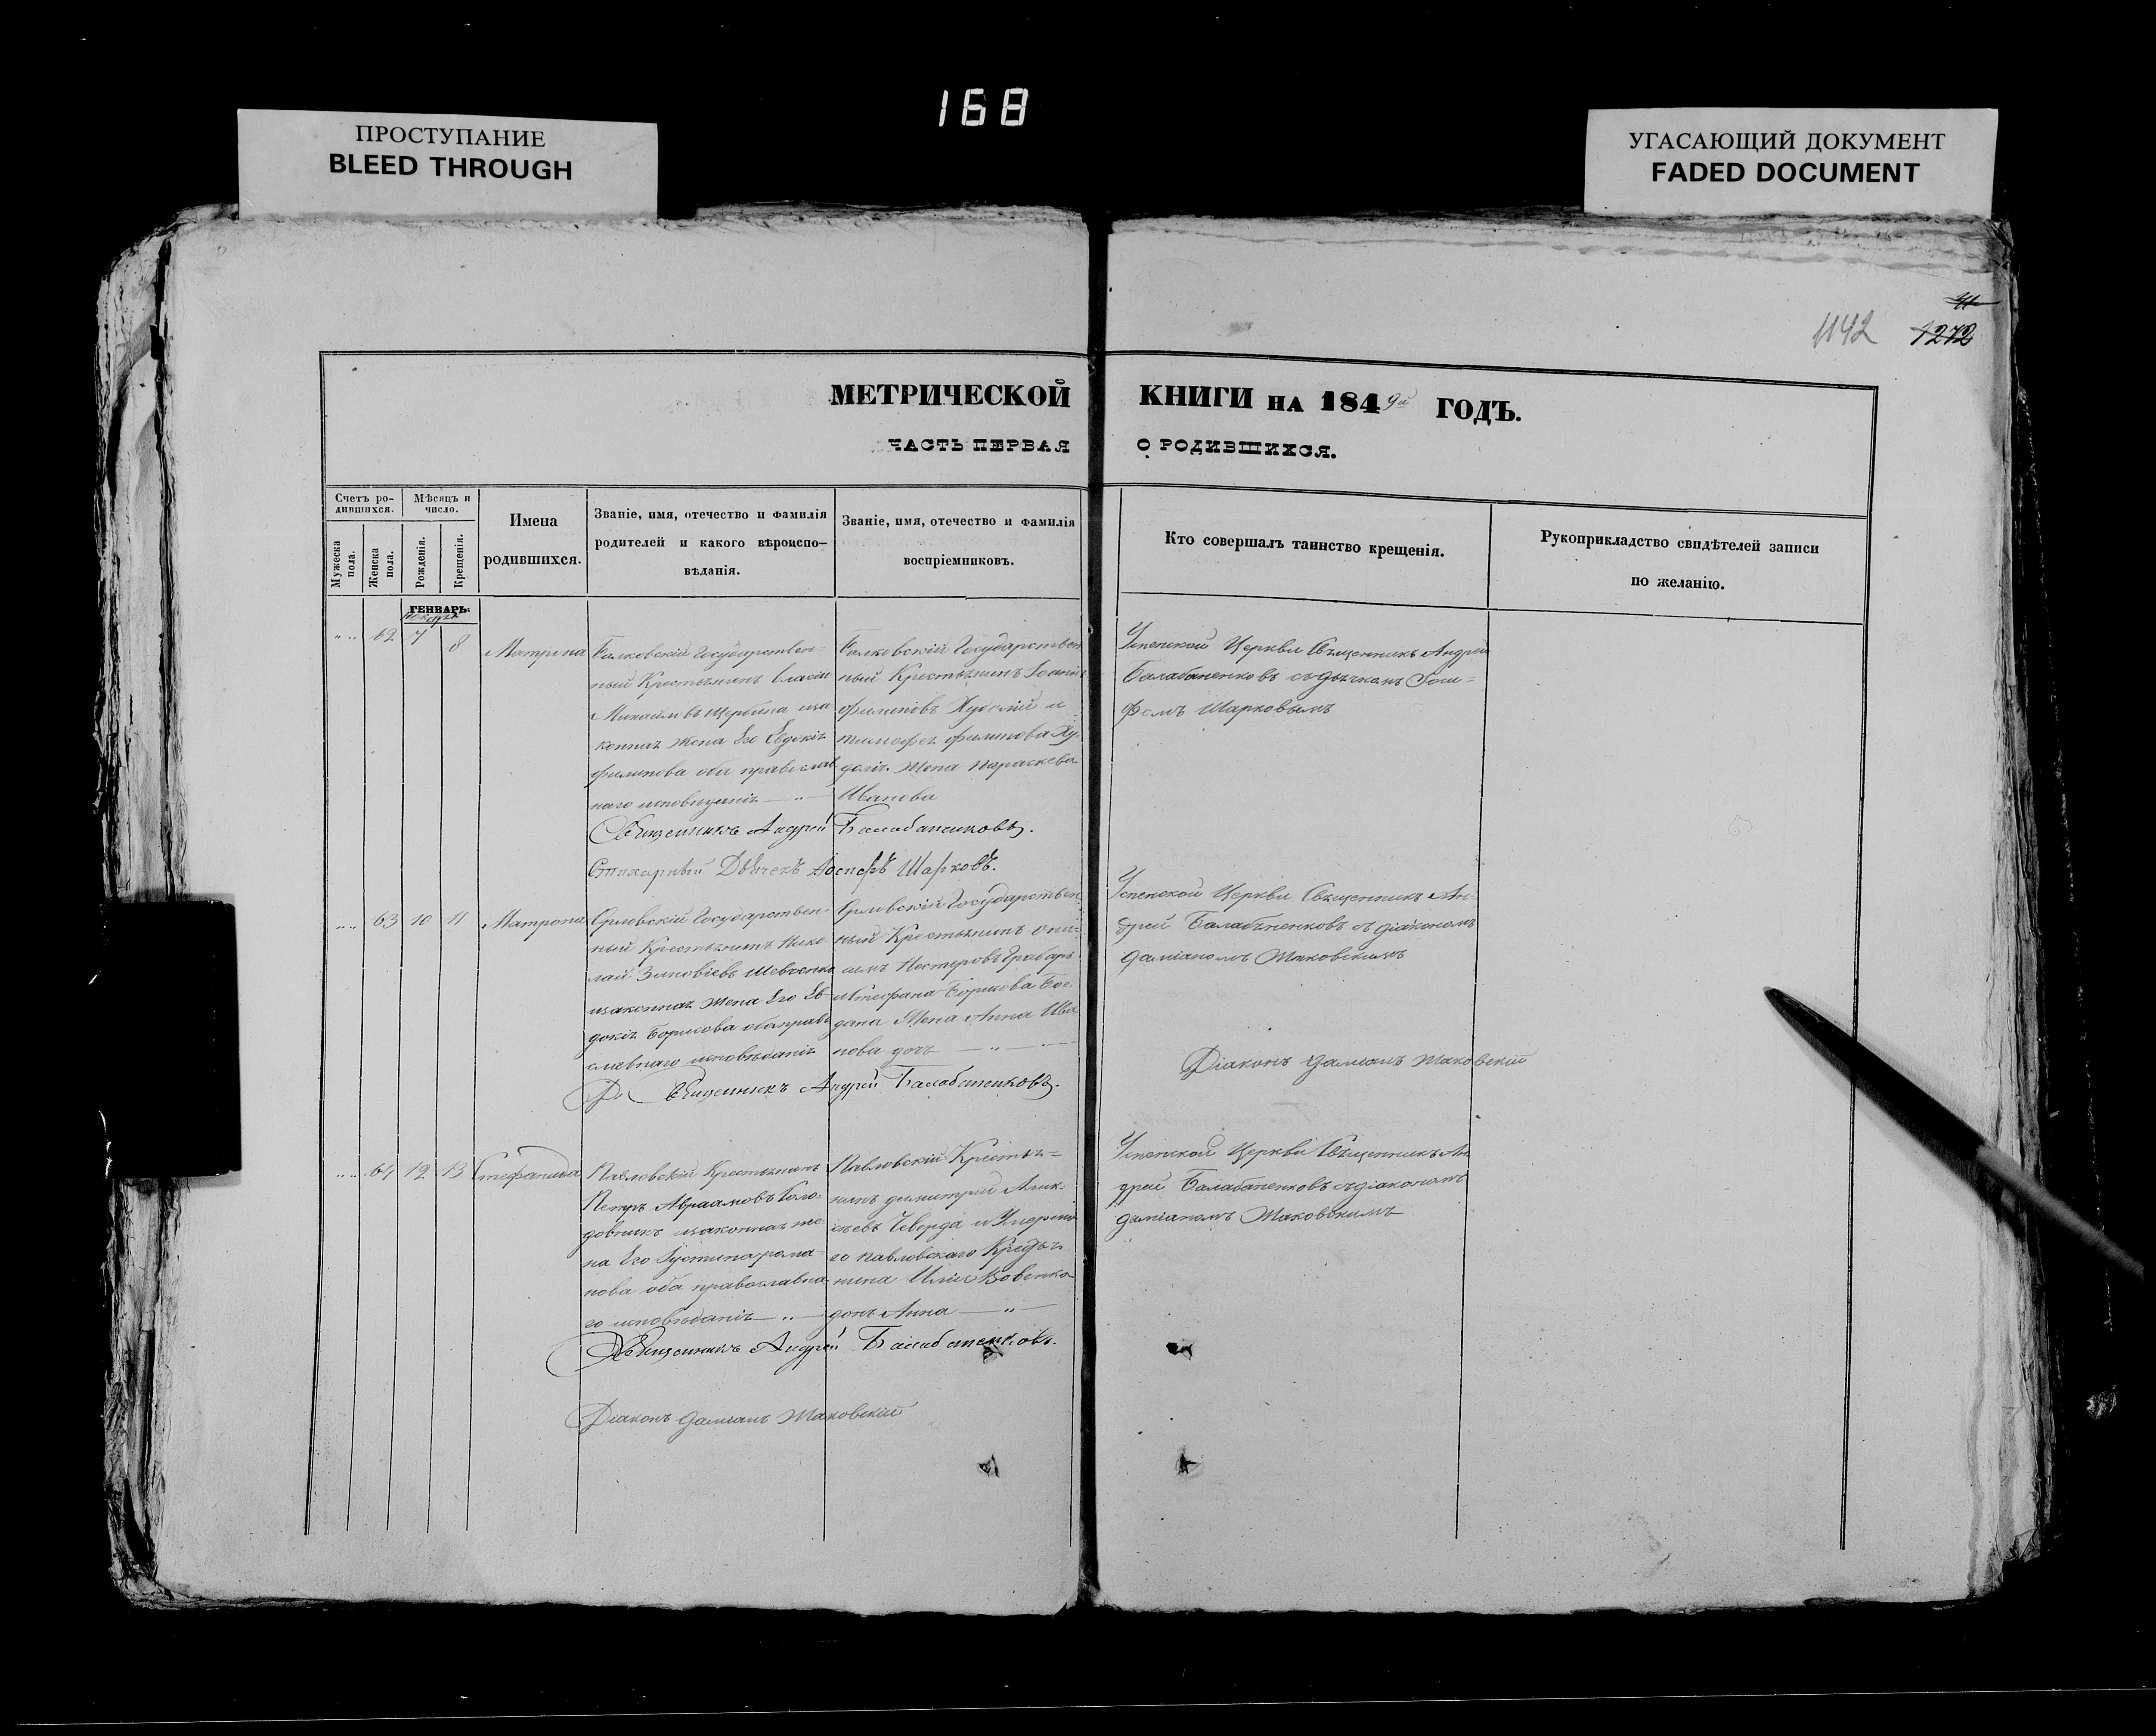 168
ПРОСТУПАНИЕ
BLEED THROUGH
УГАСАЮЩИЙ ДОКУМЕНТ
FADED DOCUMENT
1142 1272
МЕТРИЧЕСКОЙ КНИГИ НА 1849й ГОДЪ.
ЧАСТЬ ПЕРВАЯ О РОДИВШИХСЯ.
Счетъ ро-
дившихся.
Мѣсяцъ и
число.
Мужеска
пола.
Женска
пола.
Рожденія.
Крещенія.
Имена
родившихся.
Званіе, имя, отечество и фамилія
родителей и какого вѣроиспо-
вѣданія.
Званіе, имя, отечество и фамилія
воспріемниковъ.
Кто совершалъ таинство крещенія.
Рукоприкладство свидѣтелей записи
по желанію.
ГЕНВАРЬ
62 7 8 Матрона
Государствен-
ный Крестьянинъ Власій
Михайловъ Щербина и за
конная жена Его Евдокія
Филипова оба православ
наго исповѣданія
Государствен
ный Крестьянинъ Іоаннъ
Филиповъ и
Тимофея Филипова Ху
жена Параскева
Иванова
Успенской Церкви Священникъ Андрей
Балабаненковъ съ дьячкомъ Іоси-
фомъ Шарковымъ
Священникъ Андрей Балабаненковъ.
Стихарный Дьячекъ Іосифъ Шарковъ.
63 10 11 Матрона
Орловскій Государствен-
ный Крестьянинъ Нико
лай Зиновіевъ Шевченко
и законная жена Его Ев
докія Борисова оба право
славнаго исповѣданія
Орловскій Государствен
ный Крестьянинъ Они-
симъ Нестеровъ Грабарь
и Стефана Борисова Бог
дана жена Анна Ива
нова дочь
Успенской Церкви Священникъ Ан-
дрей Балабаненковъ съ діакономъ
Даміаномъ Маковскимъ
Діаконъ Даміанъ Маковскій
Священникъ Андрей Балабаненковъ.
64 12 13 Стефанида
Павловскій Крестьянинъ
Петръ Авраамовъ Голо-
довникъ и законная же
на Его Іустина Рома-
нова оба православна
го исповѣданія
Павловскій Крестья=
нинъ Димитрій Алек-
сѣевъ Чеверда и Умерша
го Павловскаго Крестья
нина Иліи Вовенка
дочь Анна
Успенской Церкви Священникъ Ан
дрей Балабаненковъ съ діакономъ
Даміаномъ Маковскимъ
Священникъ Андрей Балабаненковъ.
Діаконъ Даміанъ Маковскій